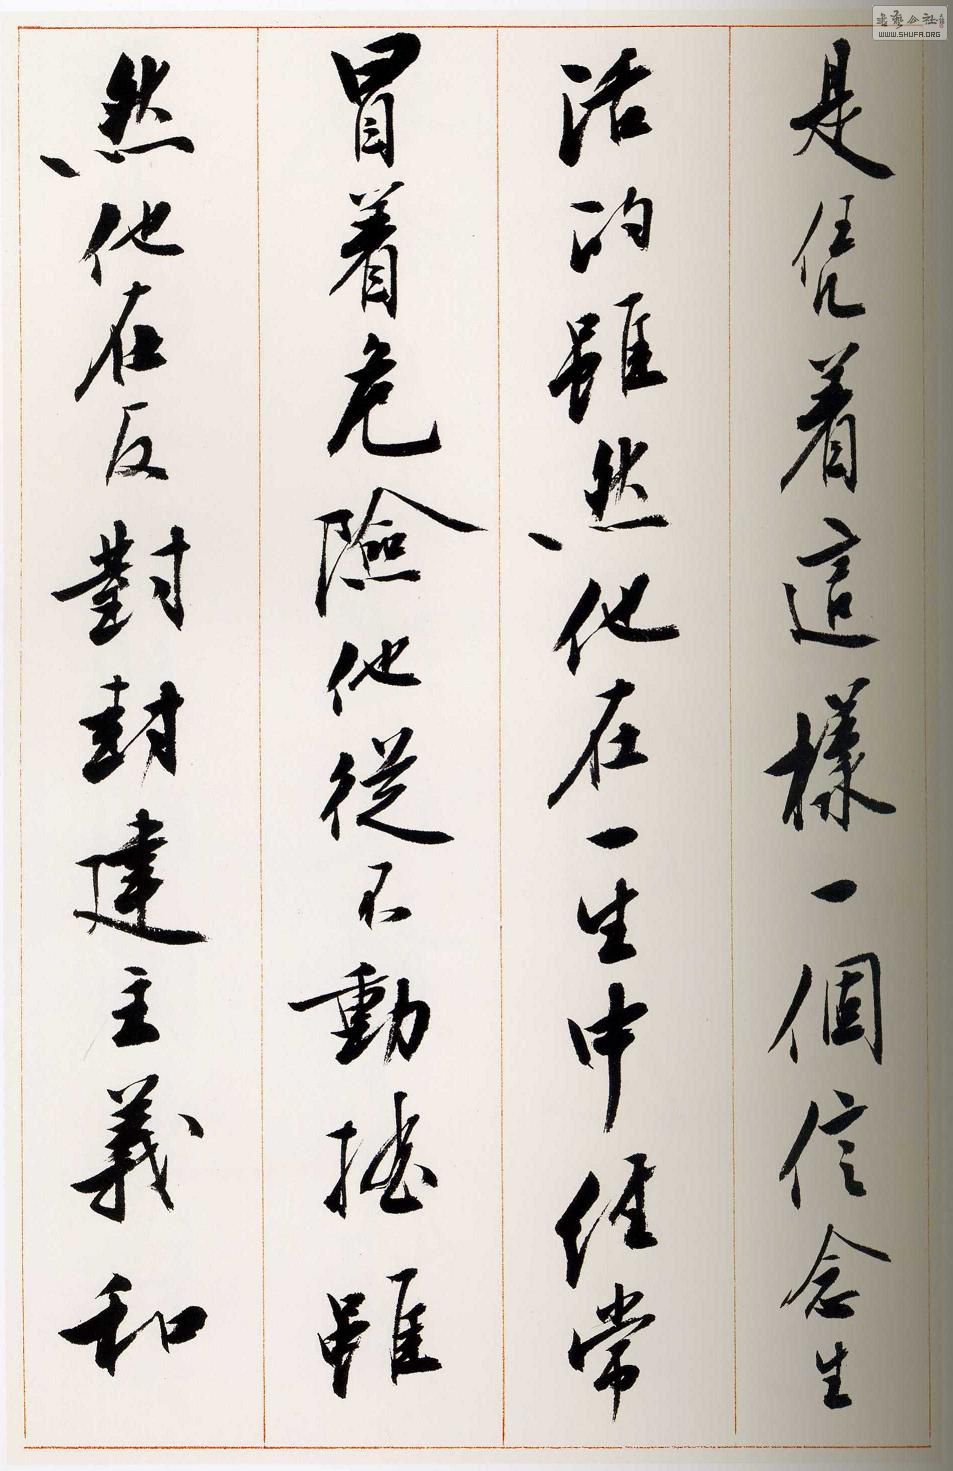 是凭着這樣一個信念生
活的雖然他在一生中經常
冒着危險他從不動摇雖
然他在反對封建主義和
书艺公社
WWW.SHUFA.ORG